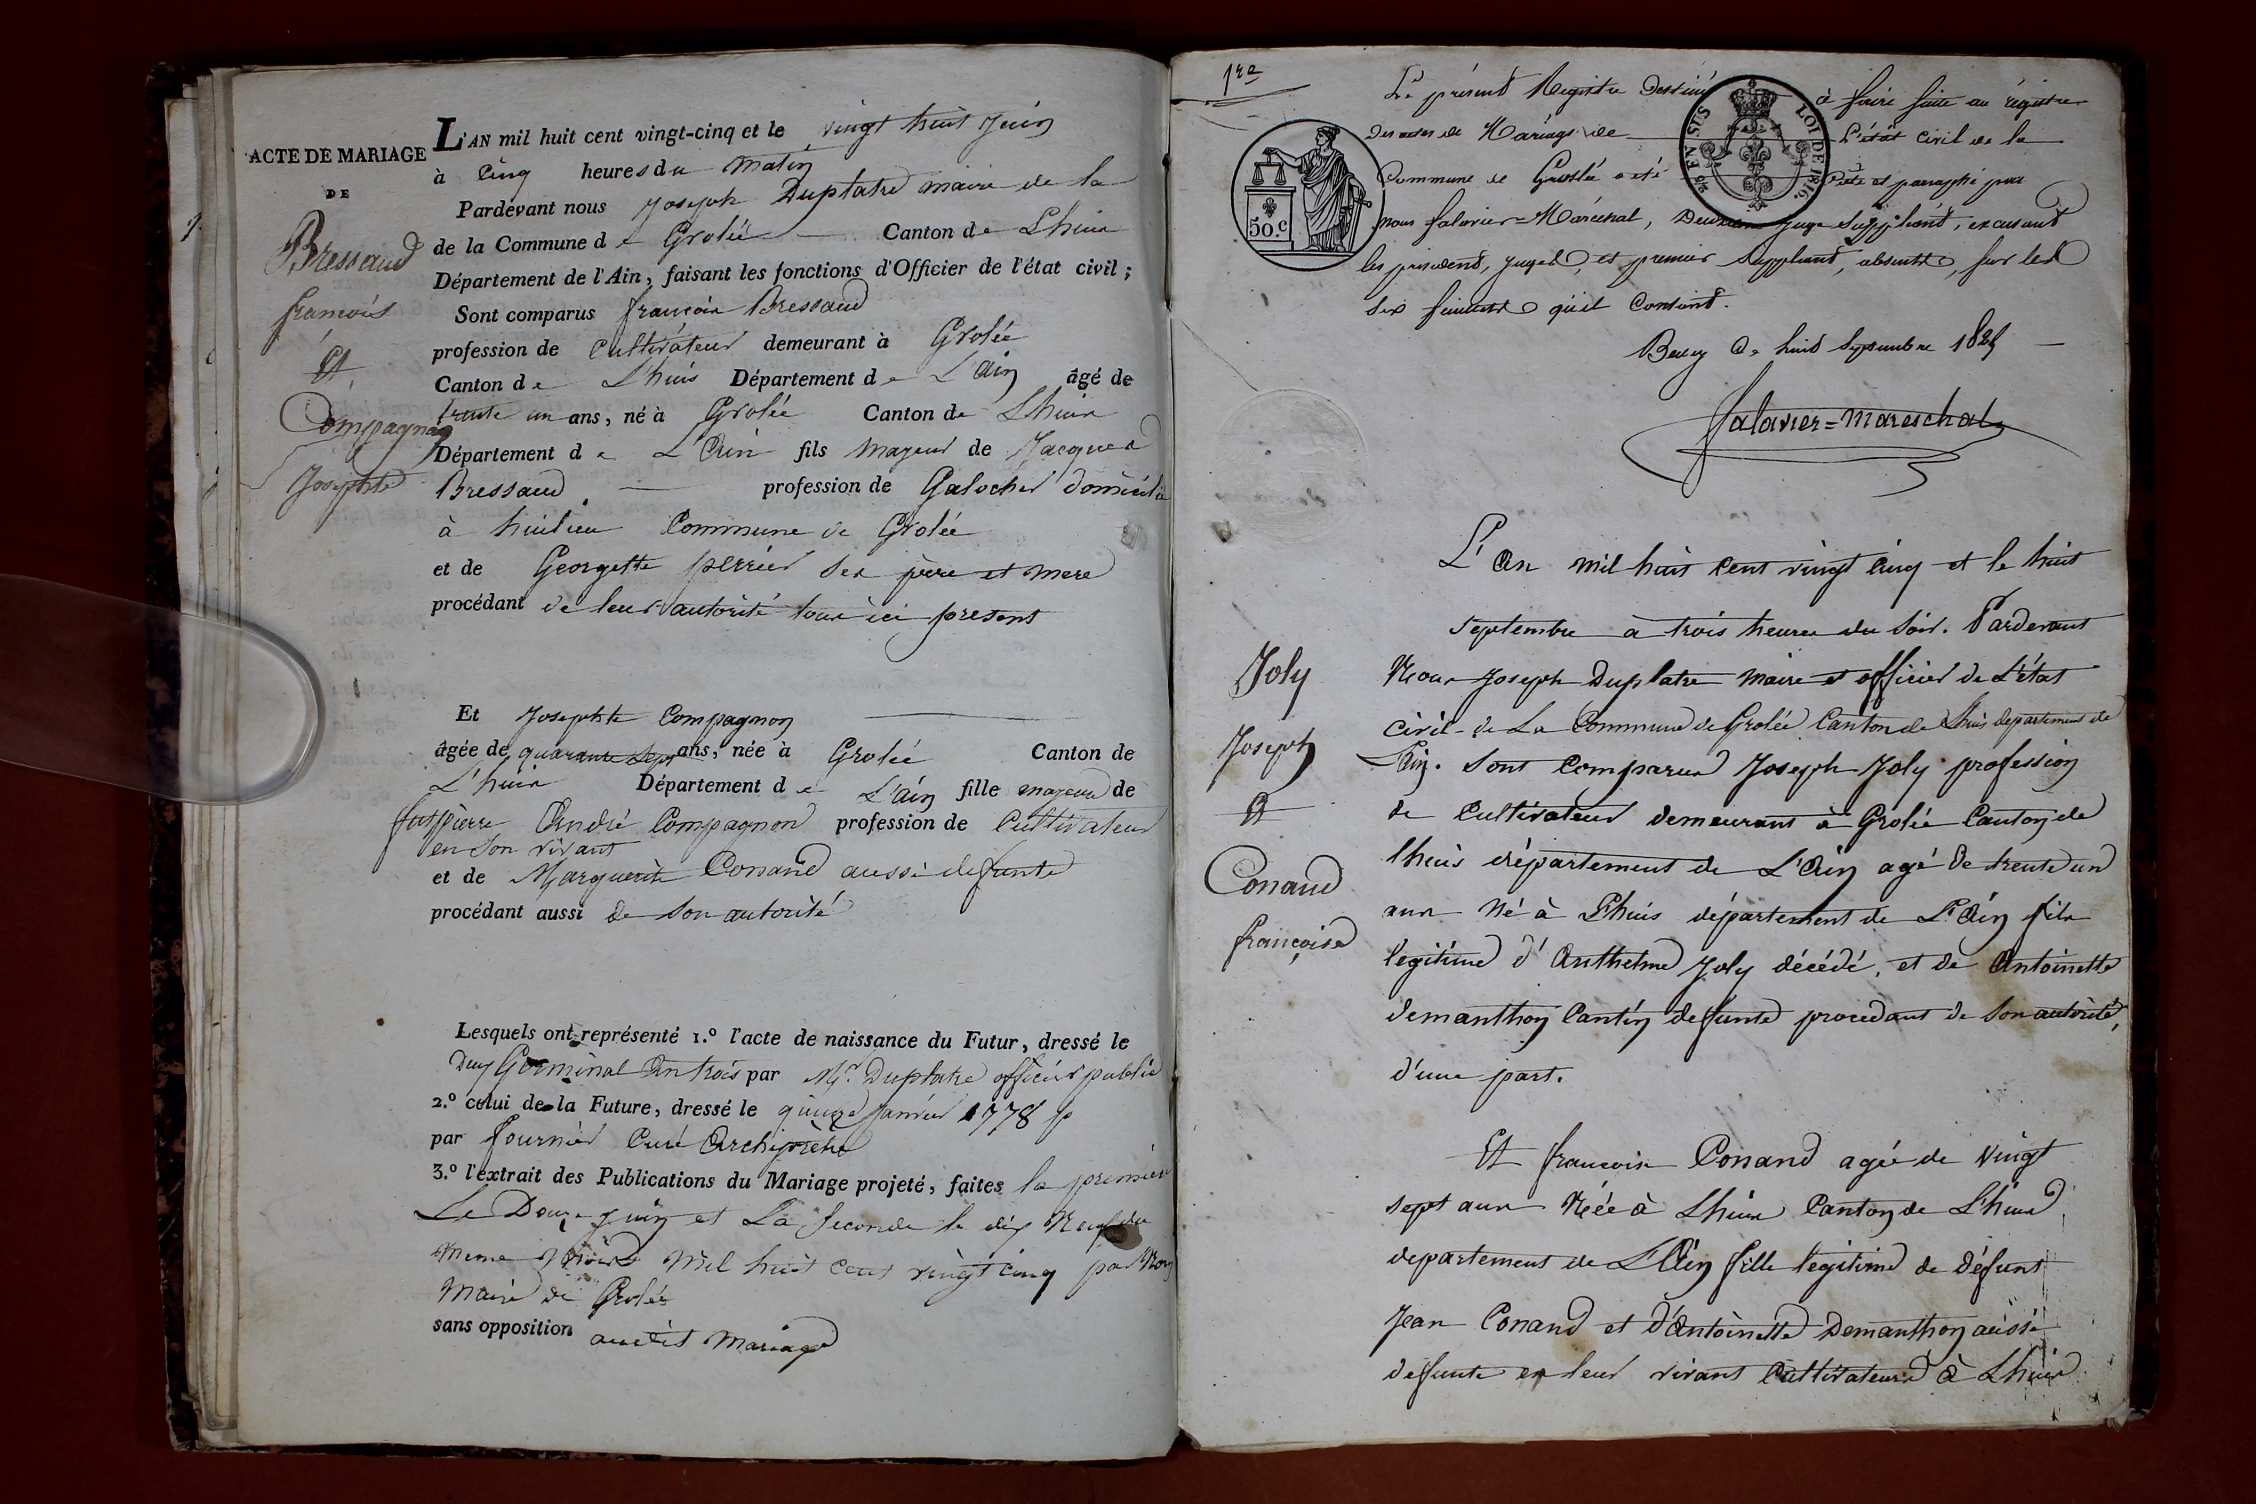 ACTE DE MARIAGE
DE
Bressaud
françois
Et
Compagnon
Josephte
L'AN mil huit cent vingt-cinq et le vingt huit Juin
à Cinq heures du matin
Pardevant nous Joseph Duplatre maire de la
de la Commune de Grolée Canton de Lhuis
Département de l'Ain, faisant les fonctions d'Officier de l'état civil;
Sont comparus françois Bressaud
profession de Cultivateur demeurant à Grolée
Canton de L'huis Département de L'Ain âgé de
trente un ans, né à Grolée Canton de Lhuis
Département de L'Ain fils majeur de Jacques
Bressaud profession de Galocher domicilié
à huilieu Commune de Grolée
et de Georgette perrier ses père et mere
procédant de leur autorité tous ici présent
Et Josephte Compagnon
âgée de quarante sept ans, née à Grolée Canton de
L'huis Département de L'ain fille majeure de
fut pierre André Compagnon profession de Cultivateur
en son vivant
et de Marguerite Conand aussi defunte
procédant aussi de son autorité
Lesquels ont représenté 1.º l'acte de naissance du Futur, dressé le
Germinal an trois par Mr. Duplatre officier public
2.º celui de la Future, dressé le quinze Janvier 1778
par fournier Curé Archiprêtre
3.º l'extrait des Publications du Mariage projeté, faites la premiere
Le Douze juin et La seconde le dix Neuf du
meme Mois Mil huit cent vingt cinq par Nous
Maire de Grolée
sans opposition audit Mariage
1re
Le présent Registre destiné à faire suite au régistre
des actes de Mariage de L'état civil de la
Commune de Grolée a été Coté et paraphé par
nous falavier=Maréchal, Deuxieme juge suppléant, excusant
les président, juges, et premier suppléant, absents, sur les
six feuillets qu'il contient.
Belley Le huit Septembre 1825
falavier=mareschal
50.c
EN SUS
LOI DE 1816
Joly
Joseph
Et
Conand
françoise
L'An mil huit cent vingt cinq et le huit
septembre à trois heures du soir. Pardevant
Nous Joseph Duplatre Maire et officier de L'état
civil de La Commune de Grolée Canton de Lhuis departement de
L'ain. Sont Comparus Joseph Joly profession
de Cultivateur demeurant à Grolée Canton de
lhuis département de L'Ain agé de trente un
ans Né à Lhuis département de L'Ain fils
legitime d'Anthelme Joly décédé, et de Antoinette
demanthon Cantin defunte procedant de son autorité,
d'une part.
Et françoise Conand agée de Vingt
sept ans Née à Lhuis Canton de L'huis
departement de L'Ain fille legitime de défunt
Jean Conand et d'Antoinette Demanthon aussi
defunte en leur vivant Cultivateurs à Lhuis